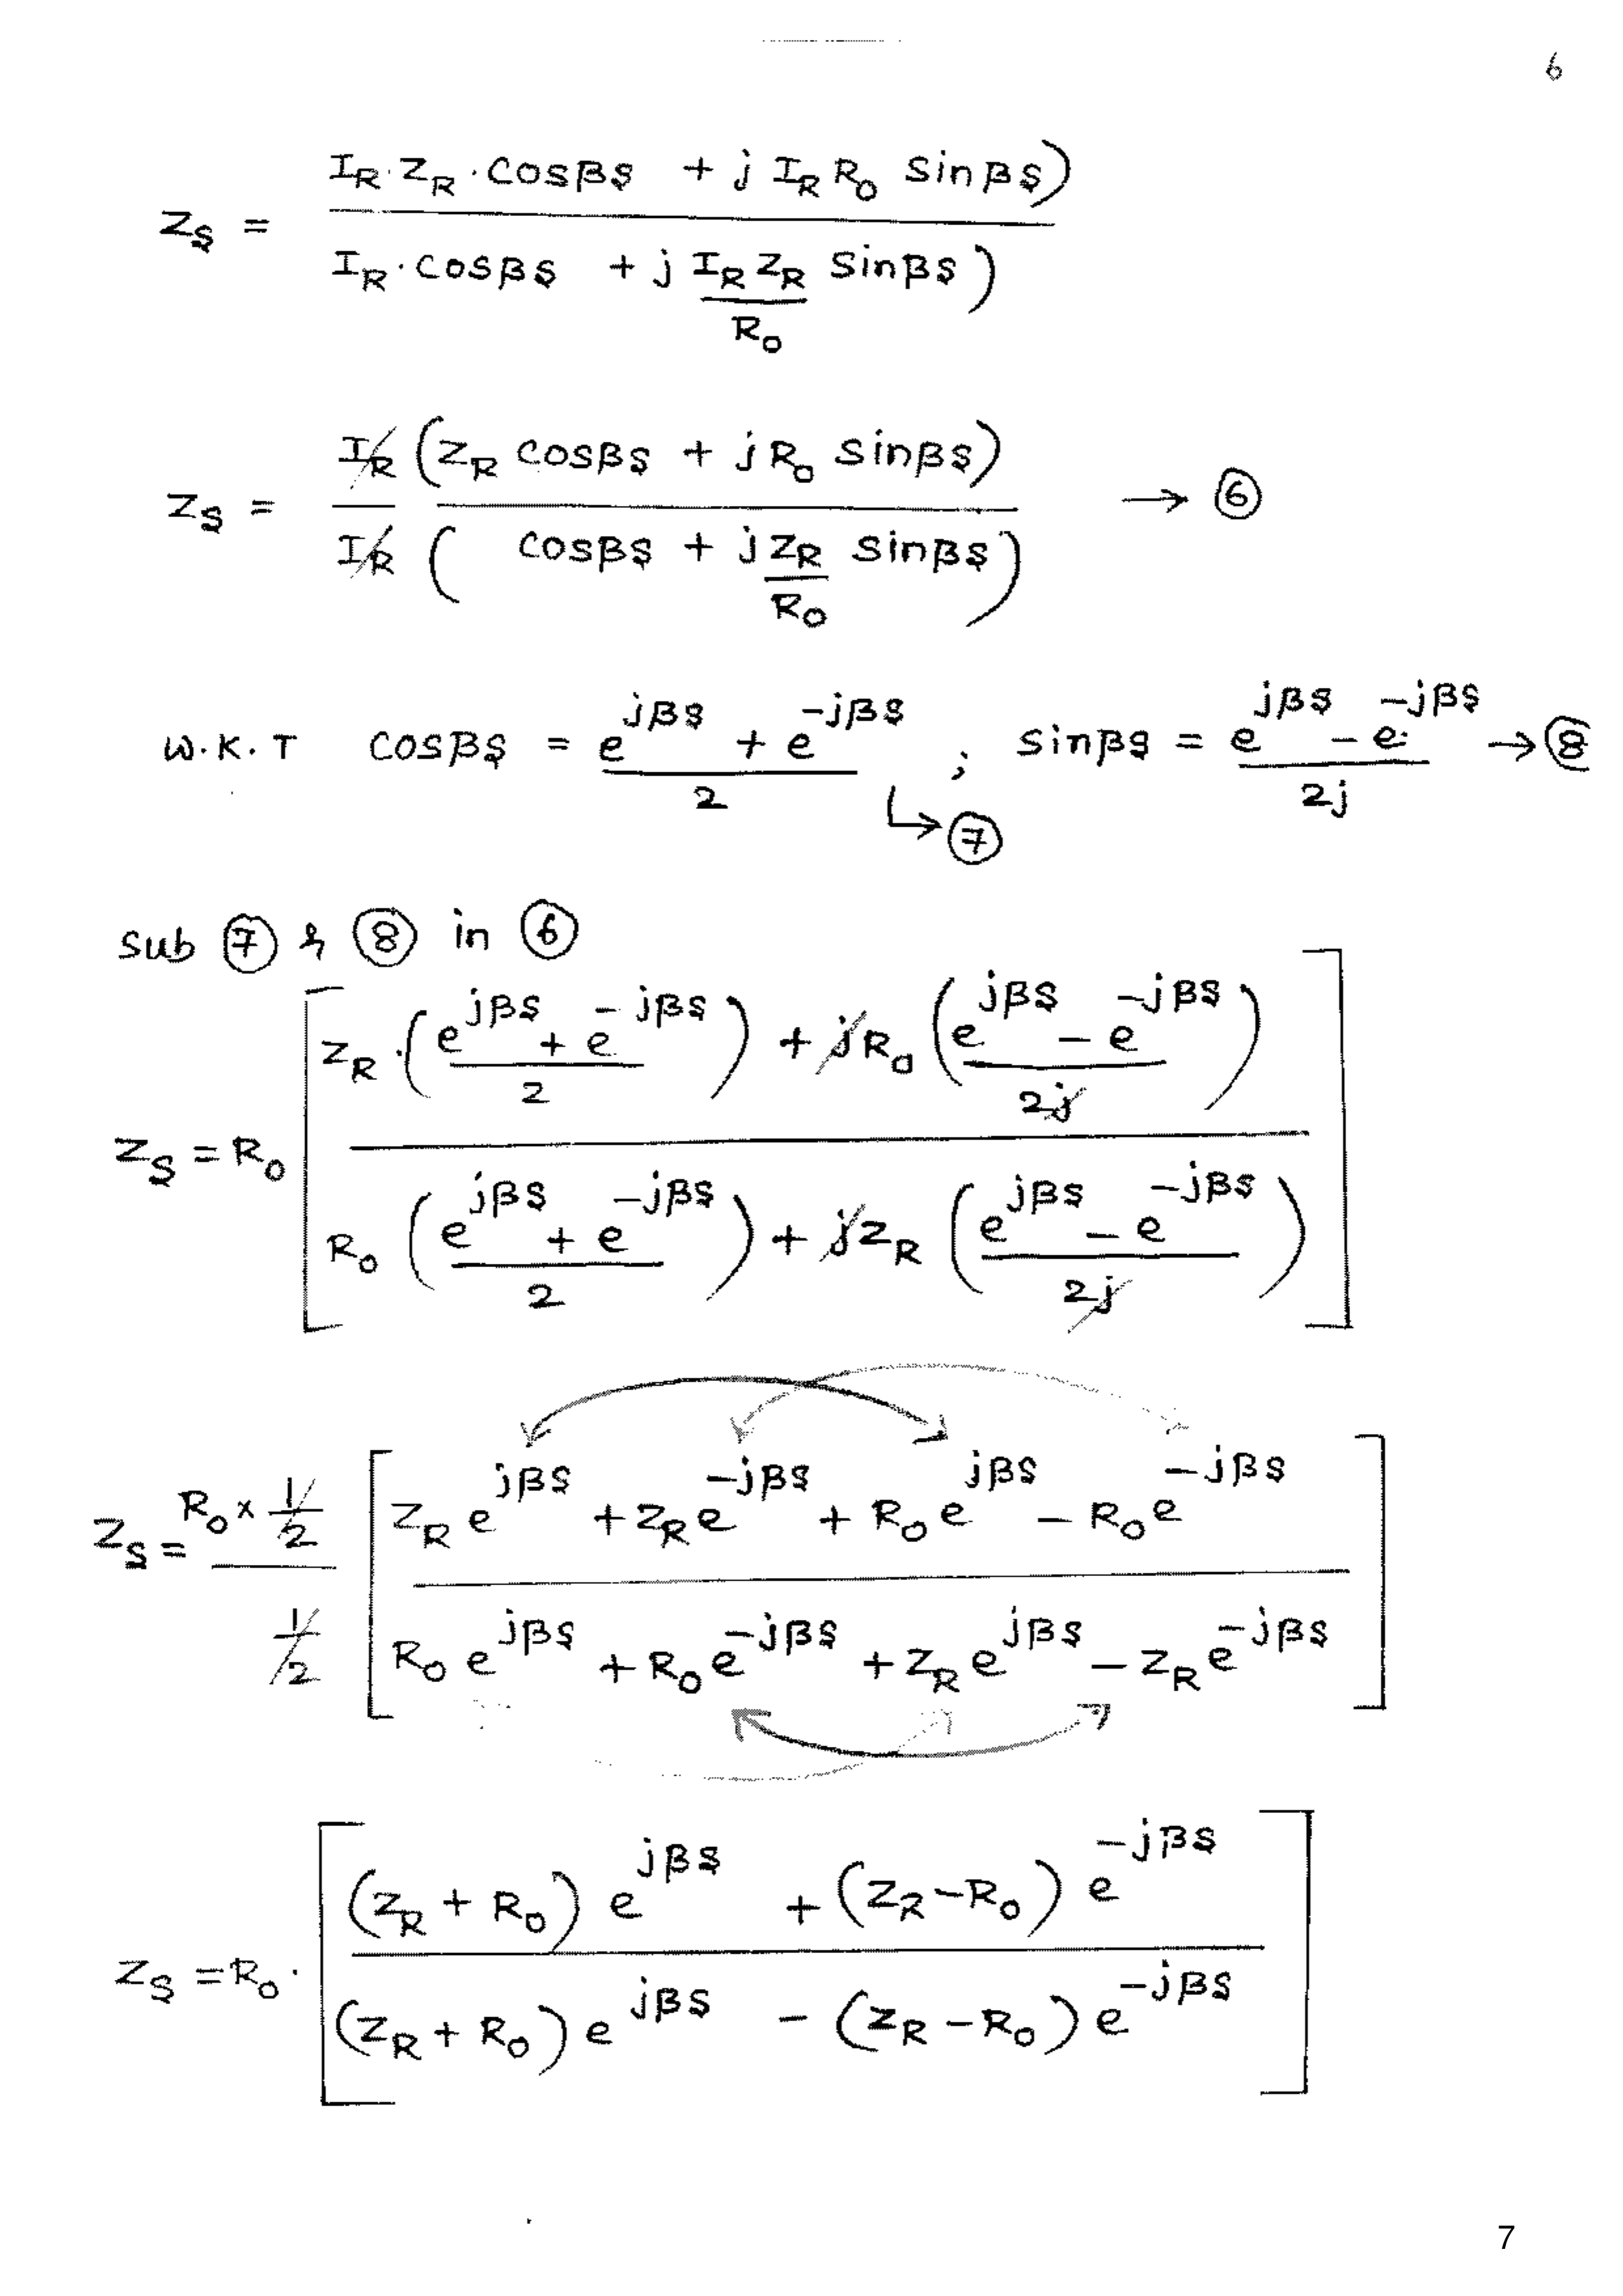 6
Z_S = (I_R · Z_R · cosβs + j I_R R_0 sinβs) / (I_R · cosβs + j (I_R Z_R / R_0) sinβs)
Z_S = I_R (Z_R cosβs + j R_0 sinβs) / I_R (cosβs + j (Z_R / R_0) sinβs) → ⑥
W.K.T cosβs = (e^{jβs} + e^{-jβs}) / 2 → ⑦ ; sinβs = (e^{jβs} - e^{-jβs}) / 2j → ⑧
sub ⑦ & ⑧ in ⑥
Z_S = R_0 [ Z_R · ((e^{jβs} + e^{-jβs}) / 2) + j R_0 ((e^{jβs} - e^{-jβs}) / 2j) / R_0 ((e^{jβs} + e^{-jβs}) / 2) + j Z_R ((e^{jβs} - e^{-jβs}) / 2j) ]
Z_S = (R_0 × 1/2) / (1/2) [ Z_R e^{jβs} + Z_R e^{-jβs} + R_0 e^{jβs} - R_0 e^{-jβs} / R_0 e^{jβs} + R_0 e^{-jβs} + Z_R e^{jβs} - Z_R e^{-jβs} ]
Z_S = R_0 · [ (Z_R + R_0) e^{jβs} + (Z_R - R_0) e^{-jβs} / (Z_R + R_0) e^{jβs} - (Z_R - R_0) e^{-jβs} ]
7